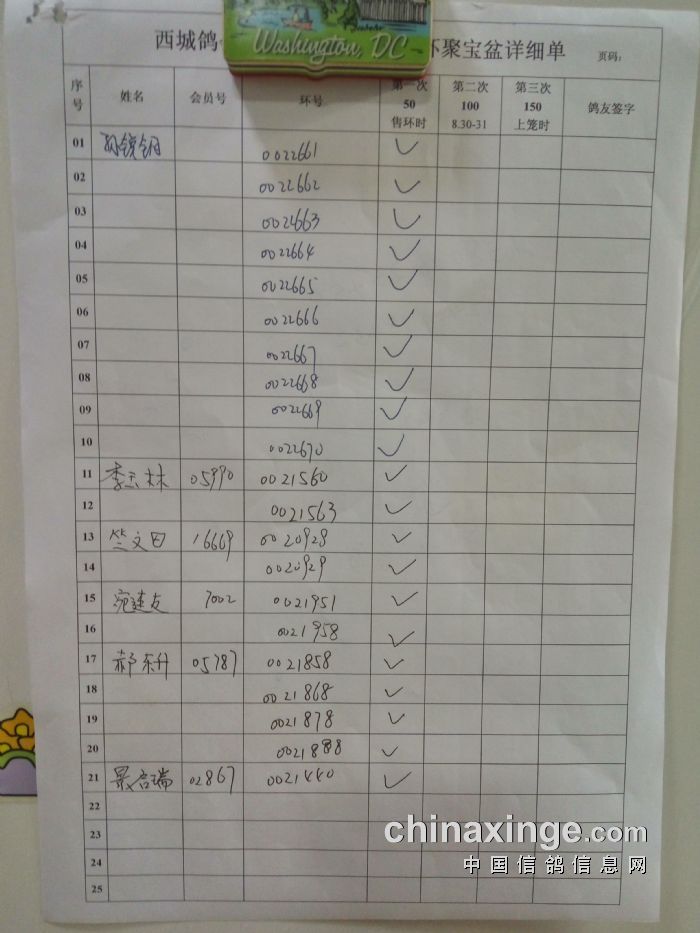 Washington, DC
西城鸽 环聚宝盆详细单 页码:
序号 姓名 会员号 环号 第一次 50 售环时 第二次 100 8.30-31 第三次 150 上笼时 鸽友签字
01 0022661 ✓
02 0022662 ✓
03 0022663 ✓
04 0022664 ✓
05 0022665 ✓
06 0022666 ✓
07 0022667 ✓
08 0022668 ✓
09 0022669 ✓
10 0022670 ✓
11 李玉林 05990 0021560 ✓
12 0021563 ✓
13 竺文田 16669 0020928 ✓
14 0020929 ✓
15 宛建友 7002 0021951 ✓
16 0021958 ✓
17 郝东升 05787 0021858 ✓
18 0021868 ✓
19 0021878 ✓
20 0021888 ✓
21 启瑞 02867 0021440 ✓
22
23
24
25
chinaxinge.com
中国信鸽信息网